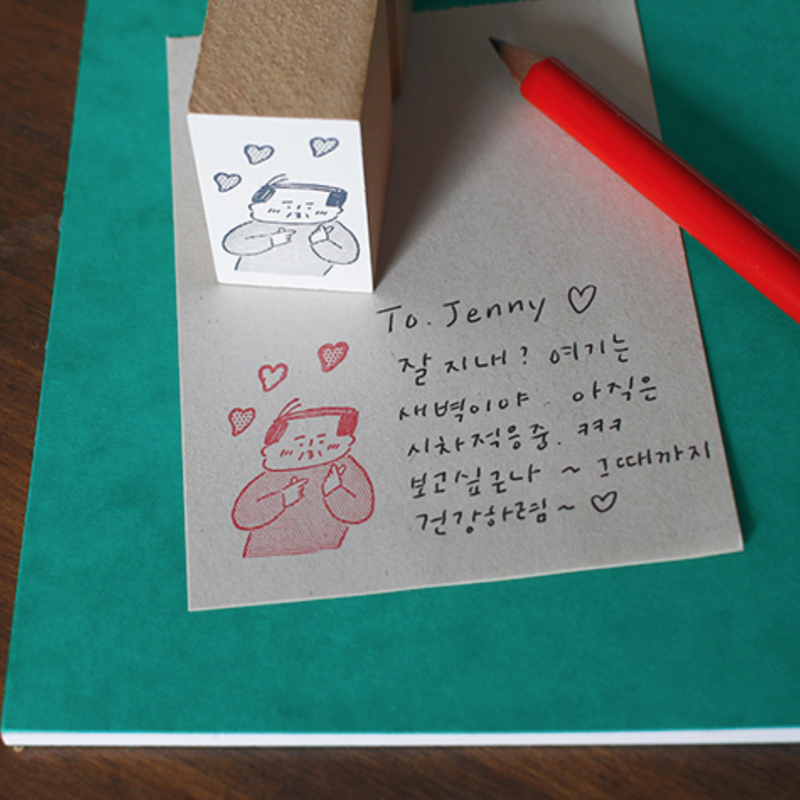 To. Jenny ♡
잘 지내? 여기는
새벽이야. 아직은
시차적응중. ㅋㅋㅋ
보고싶구나 ~ 그때까지
건강하렴 ~ ♡